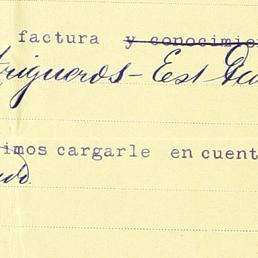 factura y conocimie
trigueros - Est
imos cargarle en cuent